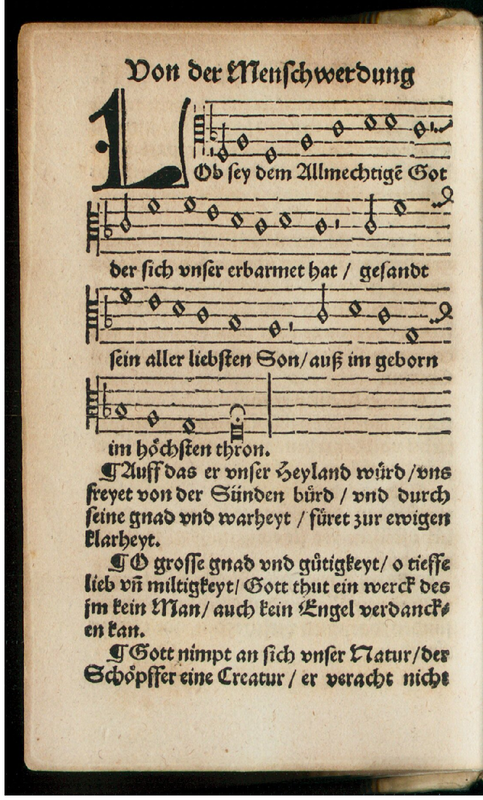 Von der Menschwerdung
LOb sey dem Allmechtigē Got
der sich vnser erbarmet hat / gesandt
sein aller liebsten Son/ auß im geborn
im höchsten thron.
¶ Auff das er vnser Heyland würd / vns
freyet von der Sünden bürd / vnd durch
seine gnad vnd warheyt / füret zur ewigen
klarheyt.
¶ O grosse gnad vnd gütigkeyt/ o tieffe
lieb vn̄ miltigkeyt/ Gott thut ein werck des
jm kein Man/ auch kein Engel verdanck⸗
en kan.
¶ Gott nimpt an sich vnser Natur/ der
Schöpffer eine Creatur / er veracht nicht